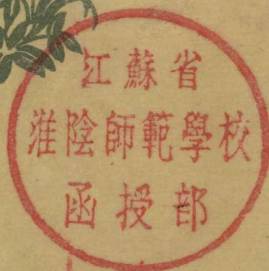 江蘇省
淮陰師範學校
函授部